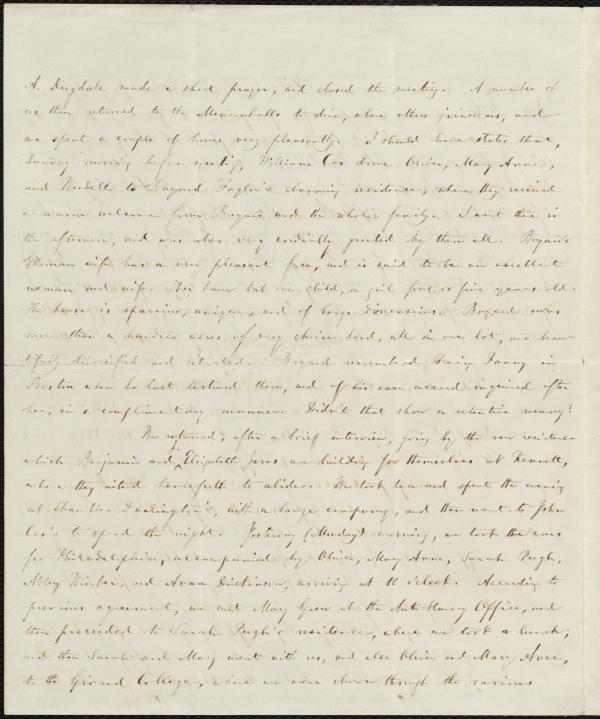 A. Dugdale made a short prayer, and closed the meeting. A number of
us then returned to the Mendenhalls to dine, where others joined us, and
we spent a couple of hours very pleasantly. I should have stated that,
Sunday morning before meeting, William Cox drove Oliver, Mary Anne,
and Wendell to Bayard Taylor's charming residence, where they received
a warm welcome from Bayard and the whole family. I went there in
the afternoon, and was also very cordially greeted by them all. Bayard's
German wife has a very pleasant face, and is said to be an excellent
woman and wife. They have but one child, a girl four or five years old.
The house is spacious, unique, and of large dimensions. Bayard owns
more than a hundred acres of very choice land, all in one lot, and beau-
tifully diversified and situated. Bayard remembered Fanny in
Boston when he last lectured there, and of his own accord inquired after
her, in a complimentary manner. Didn't that show a retentive memory!
We returned, after a brief interview, going by the new residence
which Benjamin and Elizabeth Jones are building for themselves at Kennett,
where they intend henceforth to abide. We took tea and spent the evening
at Chandler Darlington's, with a large company, and then went to John
Cox's to spend the night. Yesterday (Monday) morning, we took the cars
for Philadelphia, accompanied by Oliver, Mary Anne, Sarah Pugh,
Abby Kimber, and Anna Dickinson, arriving at 10 o'clock. According to
previous agreement, we met Mary Grew at the Anti-Slavery Office, and
then proceeded to Sarah Pugh's residence, where we took a lunch;
and then Sarah and Mary went with us, and also Oliver and Mary Anne,
to the Girard College, where we were shown through the various